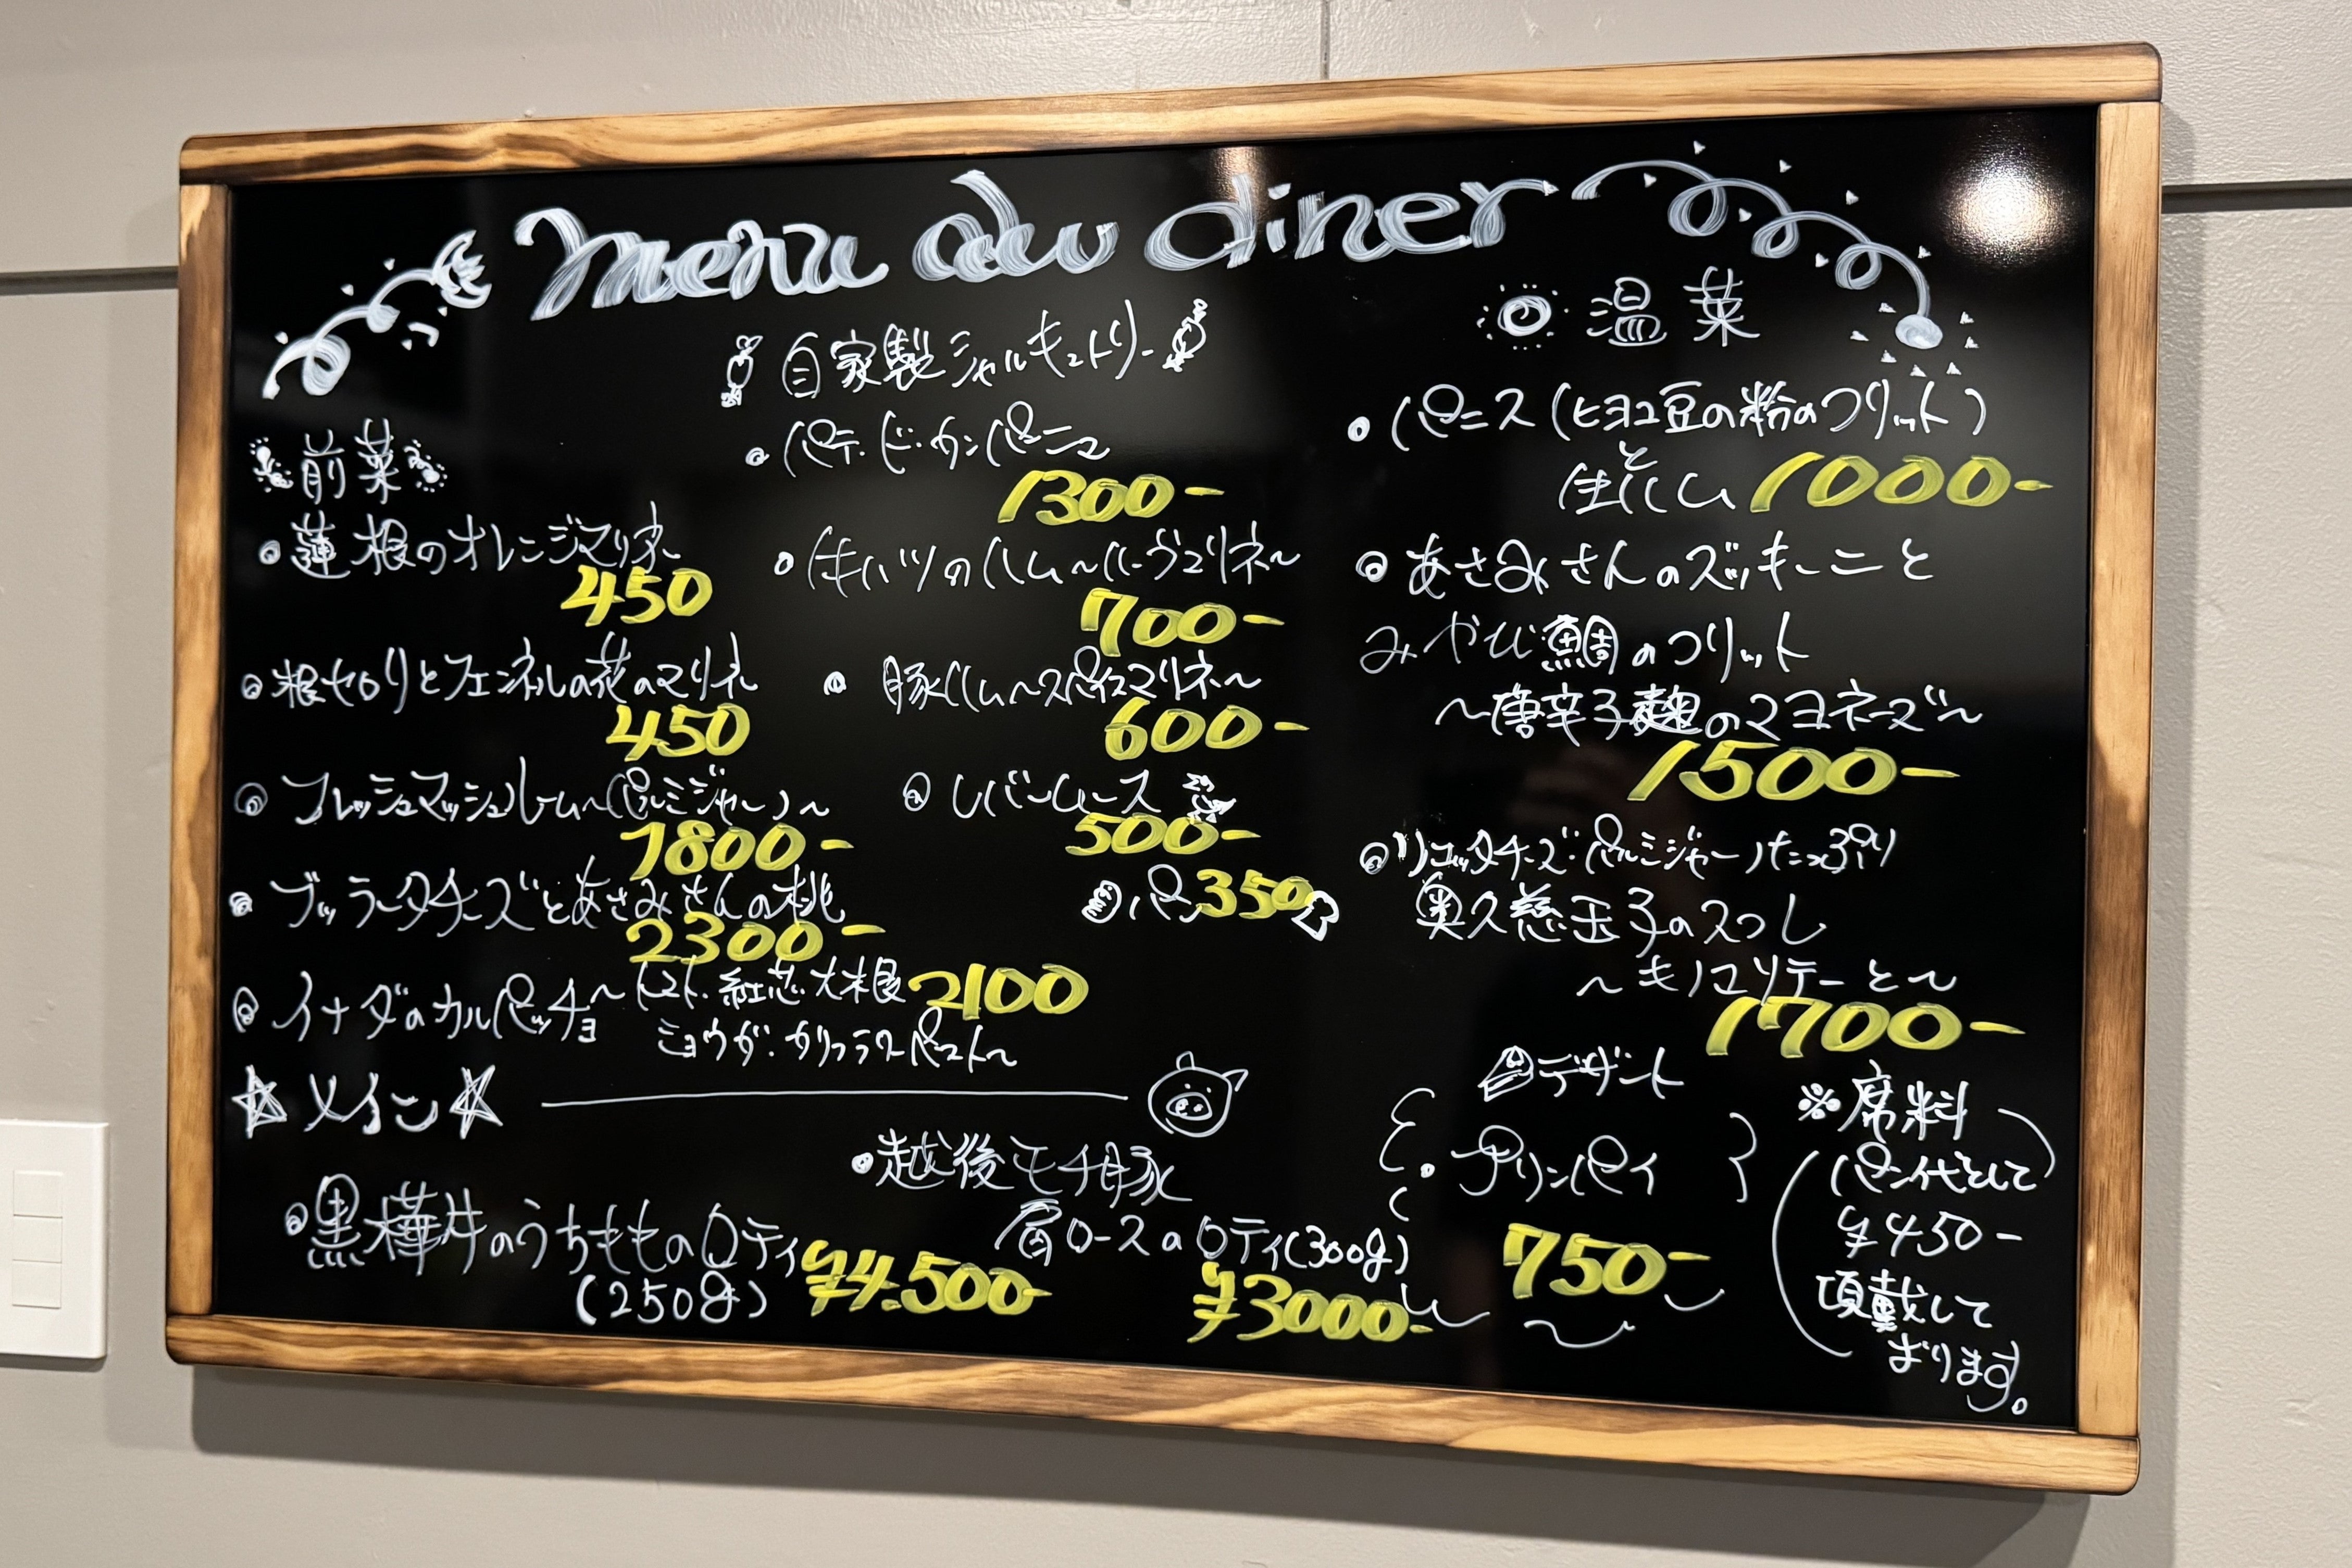 menu du diner
前菜
蓮根のオレンジマリネ
450
根切りとフェンネルの花のマリネ
450
フレッシュマッシュルーム〜パルミジャーノ〜
1800-
ブッラータチーズとあさみさんの桃
2300-
イナダのカルパッチョ〜トマト.紅芯大根 2100
ミョウガ.カリフラワーペースト〜
自家製シャルキュトリー
パテ.ド.カンパーニュ
1300-
牛ハツのハム〜ハーブマリネ〜
700-
豚ハム〜スパイスマリネ〜
600-
レバームース
500-
パン350
温菜
パニス(ヒヨコ豆の粉のフリット)
と
生ハム 1000-
あさみさんのズッキーニと
みやび鯛のフリット
〜唐辛子麹のマヨネーズ〜
1500-
リコッタチーズ.パルミジャーノたっぷり
奥久慈玉子のスフレ
〜キノコソテーと〜
1700-
メイン
黒樺牛のうちもものロティ
(250g) ¥4.500-
越後モチ豚
肩ロースのロティ(300g)
¥3000-
デザート
プリンパイ
750-
※席料
パン代として
¥450-
頂戴して
おります。